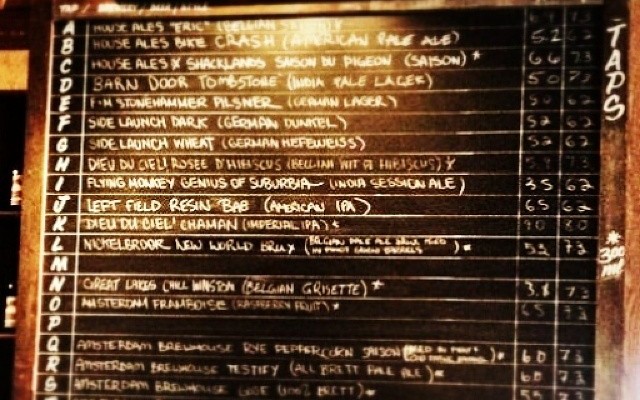 TAP / BREWERY / BEER /
A HOUSE ALES "ERIC" (BELGIAN 73
B HOUSE ALES BIKE CRASH (AMERICAN PALE ALE) 5.2 62
C HOUSE ALES X SHACKLANDS SAISON DU PIGEON (SAISON) * 66 73
D BARN DOOR TOMBSTONE (INDIA PALE LAGER) 50 73
E F+M STONEHAMMER PILSNER (GERMAN LAGER) 50 62
F SIDE LAUNCH DARK (GERMAN DUNKEL) 52 62
G SIDE LAUNCH WHEAT (GERMAN HEFEWEISS) 52 62
H DIEU DU CIEL! ROSEE D'HIBISCUS (BELGIAN WIT HIBISCUS) 5.9 73
I FLYING MONKEY GENIUS OF SUBURBIA (INDIA SESSION ALE) 35 62
J LEFT FIELD RESIN BAG (AMERICAN IPA) 65 62
K DIEU DU CIEL! CHAMAN (IMPERIAL IPA) * 90 80
L NICKELBROOK NEW WORLD BRUX (BELGIAN PALE ALE AGED IN BARRELS) * 52 73
M
N GREAT LAKES CHILL WINSTON (BELGIAN GRISETTE) * 3.8 73
O AMSTERDAM FRAMBOISE (RASPBERRY FRUIT) * 65 73
P
Q AMSTERDAM BREWHOUSE RYE PEPPERCORN SAISON * 60 73
R AMSTERDAM BREWHOUSE TESTIFY (ALL BRETT PALE ALE) * 60 73
S AMSTERDAM BREWHOUSE BRETT) * 55 73
TAPS
* 300 ml